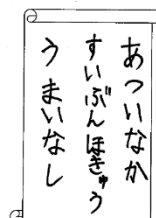 あついなか
すいぶんほきゅう
うまいなし